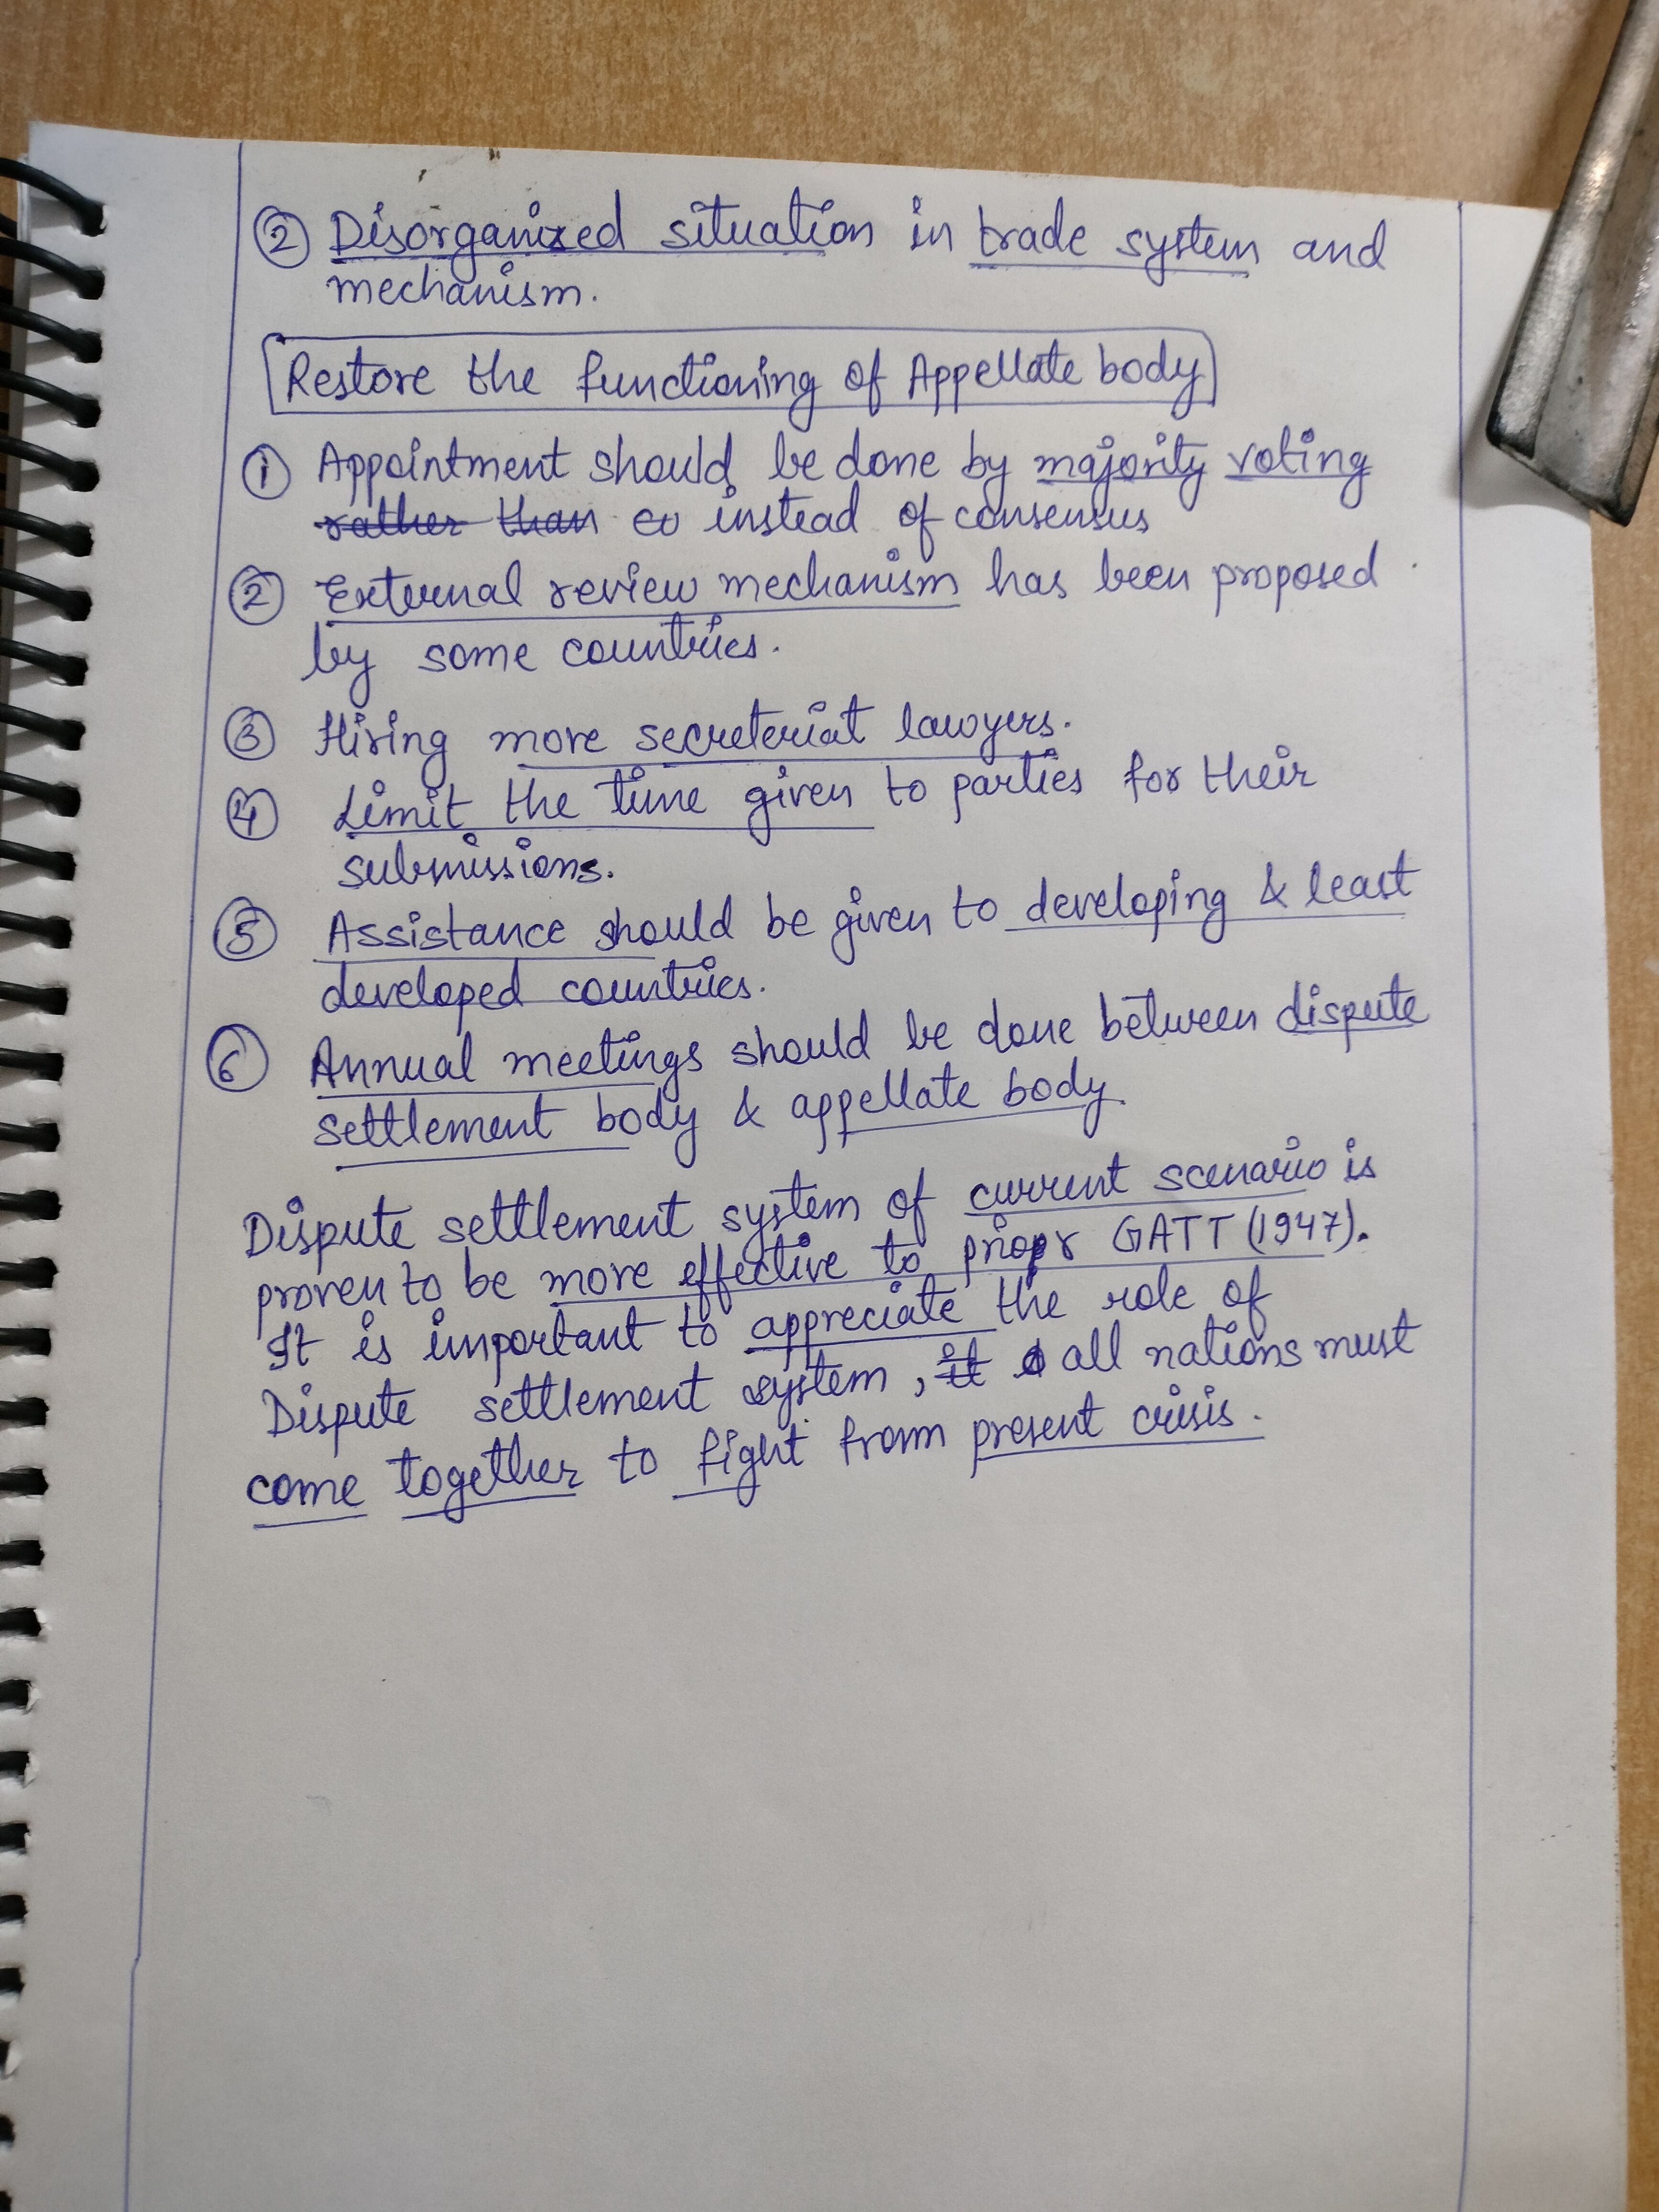 ② Disorganized situation in trade system and
mechanism.
Restore the functioning of Appellate body
① Appointment should be done by majority voting
rather than co instead of consensus
② External review mechanism has been proposed
by some countries.
③ Hiring more secreteriat lawyers.
④ Limit the time given to parties for their
submissions.
⑤ Assistance should be given to developing & least
developed countries.
⑥ Annual meetings should be done between dispute
settlement body & appellate body.
Dispute settlement system of current scenario is
proven to be more effective to priopr GATT (1947).
It is important to appreciate the role of
Dispute settlement system, it all nations must
come together to fight from present crisis.